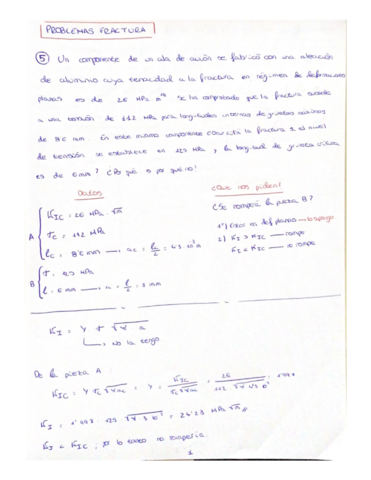 PROBLEMAS FRACTURA
⑤ Un componente de un ala de avión se fabricó con una aleación
de aluminio cuya tenacidad a la fractura en régimen de deformación
planas es de 26 MPa m^1/2 Se ha comprobado que la fractura sucede
a una tensión de 112 MPa para longitudes internas de grietas máximas
de 8'6 mm. En este mismo componente la fractura si el nivel
de tensión se establece en 125 MPa y la longitud de grieta crítica
es de 6 mm? ¿Por qué o por qué no?
Datos
¿Que nos piden?
A
K_IC = 26 MPa √m
σc = 112 MPa
lc = 8'6 mm → ac = lc/2 = 4'3·10⁻³ m
B
σ = 125 MPa
l = 6 mm → a = l/2 = 3 mm
¿Se romperá la pieza B?
2) K_I > K_IC → rompe
K_I < K_IC → no rompe
K_I = Y σ √π a
No la tengo
De la pieza A:
K_IC = Y σc √π ac → Y = K_IC / σc √π ac = 26
K_I = 125 = 24'23 MPa √m
K_I < K_IC ; lo tanto no rompería.
1